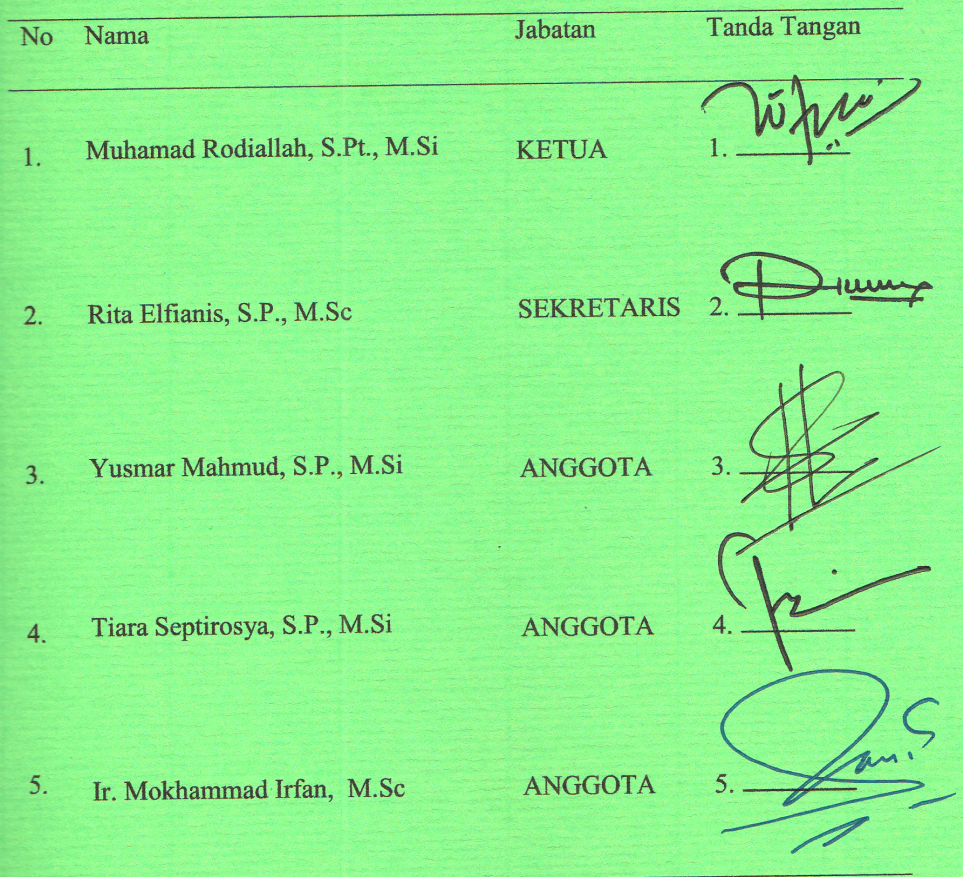 No Nama Jabatan Tanda Tangan
1. Muhamad Rodiallah, S.Pt., M.Si KETUA 1.
2. Rita Elfianis, S.P., M.Sc SEKRETARIS 2.
3. Yusmar Mahmud, S.P., M.Si ANGGOTA 3.
4. Tiara Septirosya, S.P., M.Si ANGGOTA 4.
5. Ir. Mokhammad Irfan, M.Sc ANGGOTA 5.